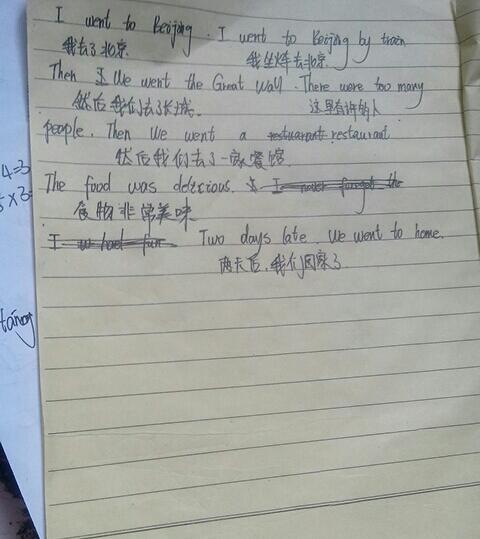 I went to Beijing. I went to Beijing by train
我去了北京. 我坐火车去北京.
Then I We went the Great Wall. There were too many
然后我们去长城. 这里有许多人
people. Then We went a restuarant restaurant
然后我们去了一家餐馆
The food was delicious. I never forget the
食物非常美味
I had fun Two days late. We went to home.
两天后,我们回家了
4=3
×3
tang